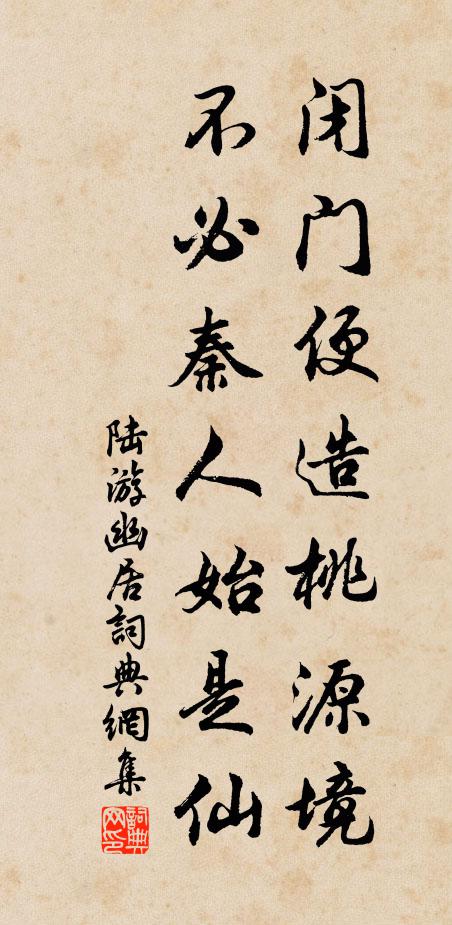 闭门便造桃源境
不必秦人始是仙
陆游幽居詞典網集
詞典网印